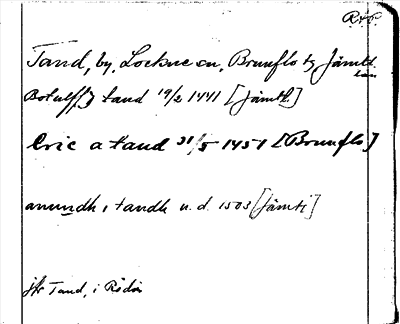 RäÖ.
Tand, by, Lockne sn, Brunflo tg Jämtl.
län
Botulff J tand 19/2 1441 [Jämtl.]
Eric a tand 31/5 1451 [Brunflo]
anundh i tandh u. d. 1503 [Jämtl]
jfr Tand, i Rödön